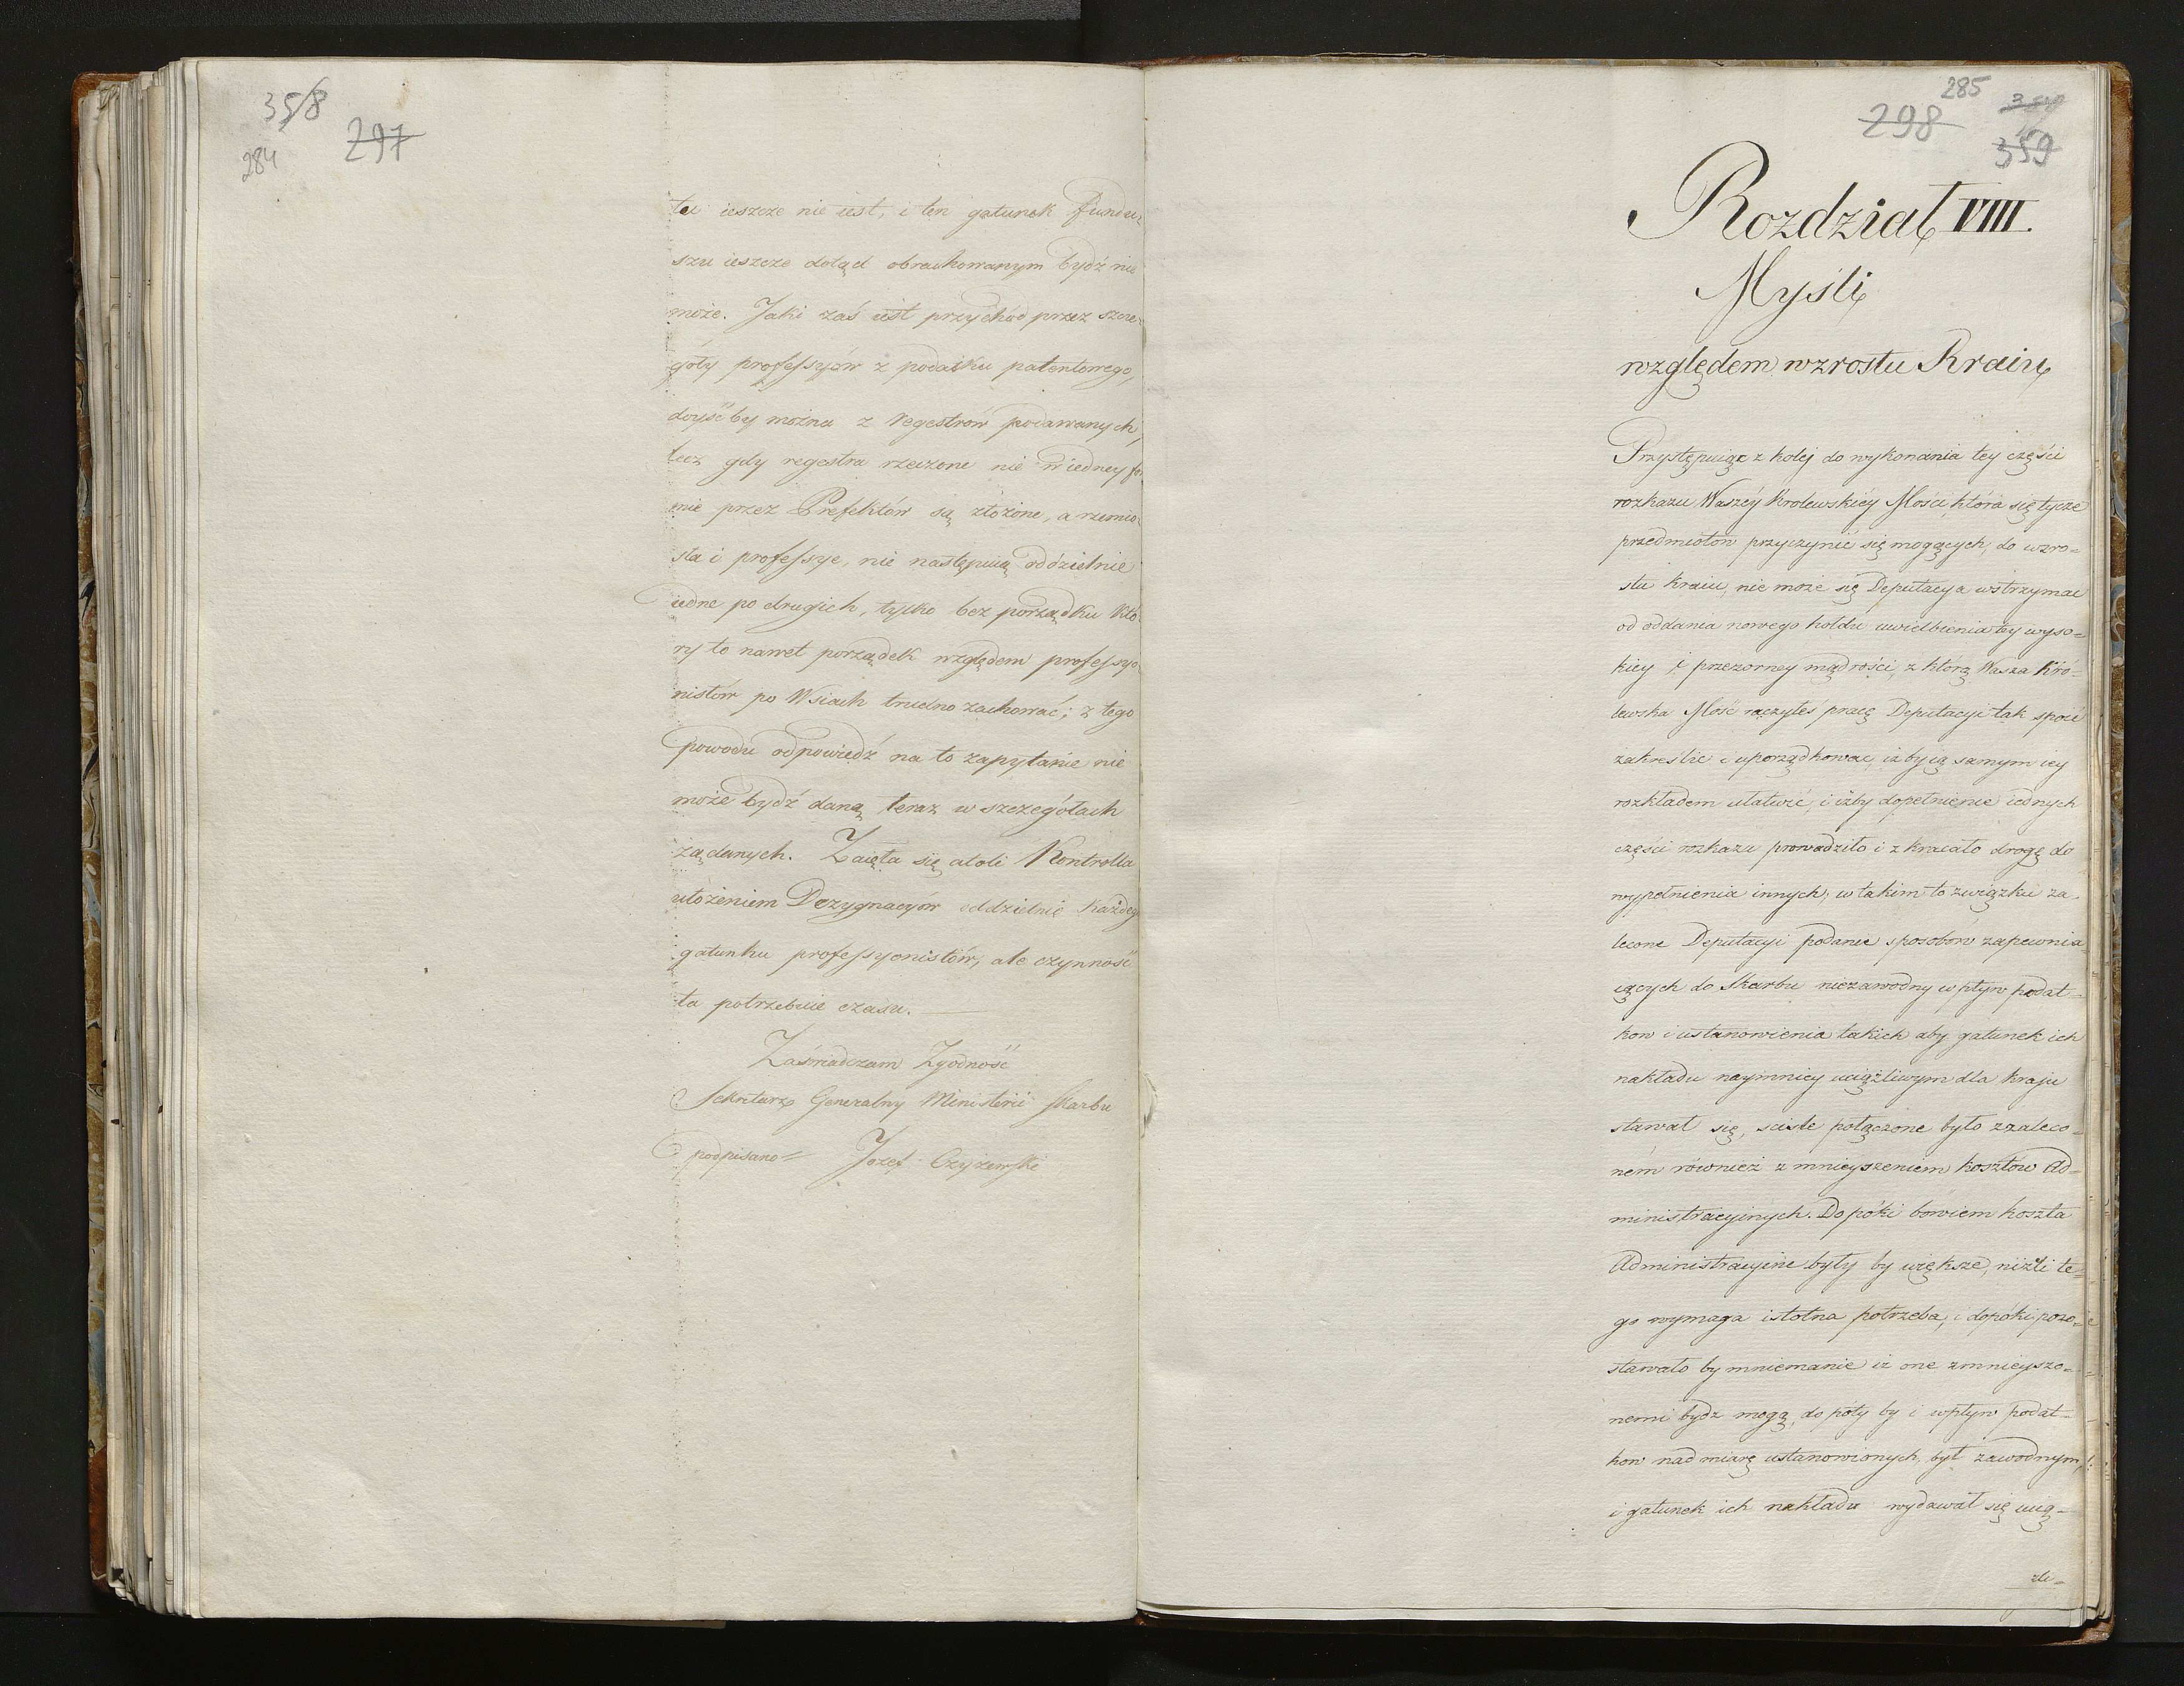 358
297
284
ta ieszcze nie iest, i ten gatunek fundu-
szu ieszcze dotąd obrachowanym bydź nie
może. Jaki zaś iest przychód przez szcze-
góły professyów z podatku patentowego,
doyść by można z Regestrów podawanych,
lecz gdy regestra rzeczone nie w iedney for-
mie przez Prefektów są złożone, a rzemio-
sła i professye, nie następuią oddzielnie
iedne po drugich, tylko bez porządku któ-
ry to nawet porządek względem professyo-
nistów po Wsiach trudno zachować; z tego
powodu odpowiedź na to zapytanie nie
może bydź daną teraz w szczegółach
żądanych. Zaięła się atoli Kontrolla
ułożeniem Dezygnacyów oddzielnie każdego
gatunku professyonistów, ale czynność
ta potrzebuie czasu.
Zaświadczam Zgodność
Sekretarz Generalny Ministerii Skarbu
podpisano = Jozef Czyżewski
285
298
359
Rozdział VIII.
Myśli
względem wzrostu Kraiu
Przystępuiąc z kolej do wykonania tey części
rozkazu Waszéy Krolewskiéy Mości, która się tycze
przedmiotów przyczynić się mogących, do wzro-
stu kraiu, nie może się Deputacya wstrzymać
od oddania nowego hołdu uwielbienia tey wyso-
kiey i przezorney mądrości, z którą Wasza Kró-
lewska Mość raczyłeś pracę Deputacyi tak spoić
zakreślić i uporządkować, iżby ią samym iey
rozkładem ułatwić, i iżby dopełnienie iednych
części rozkazu prowadziło i zkracało drogę do
wypełnienia innych; w takim to związku za-
lecone Deputacyi podanie sposobów zapewnia-
iących do Skarbu niezawodny wpływ podat-
kow i ustanowienia takich aby gatunek ich
nakładu naymniey uciążliwym dla kraju
stawał się, sciśle połączone było z zaleco-
ném również zmnieyszeniem kosztów Ad-
ministracyinych. Dopóki bowiem koszta
Administracyine były by większe, niżli te-
go wymaga istotna potrzeba, i dopóki pozo-
stawało by mniemanie iż one zmnieyszo-
nemi bydz mogą, do póty by i wpływ podat-
kow nad miarę ustanowionych, był zawodnym,
i gatunek ich nakładu wydawał się ucią-
żli-